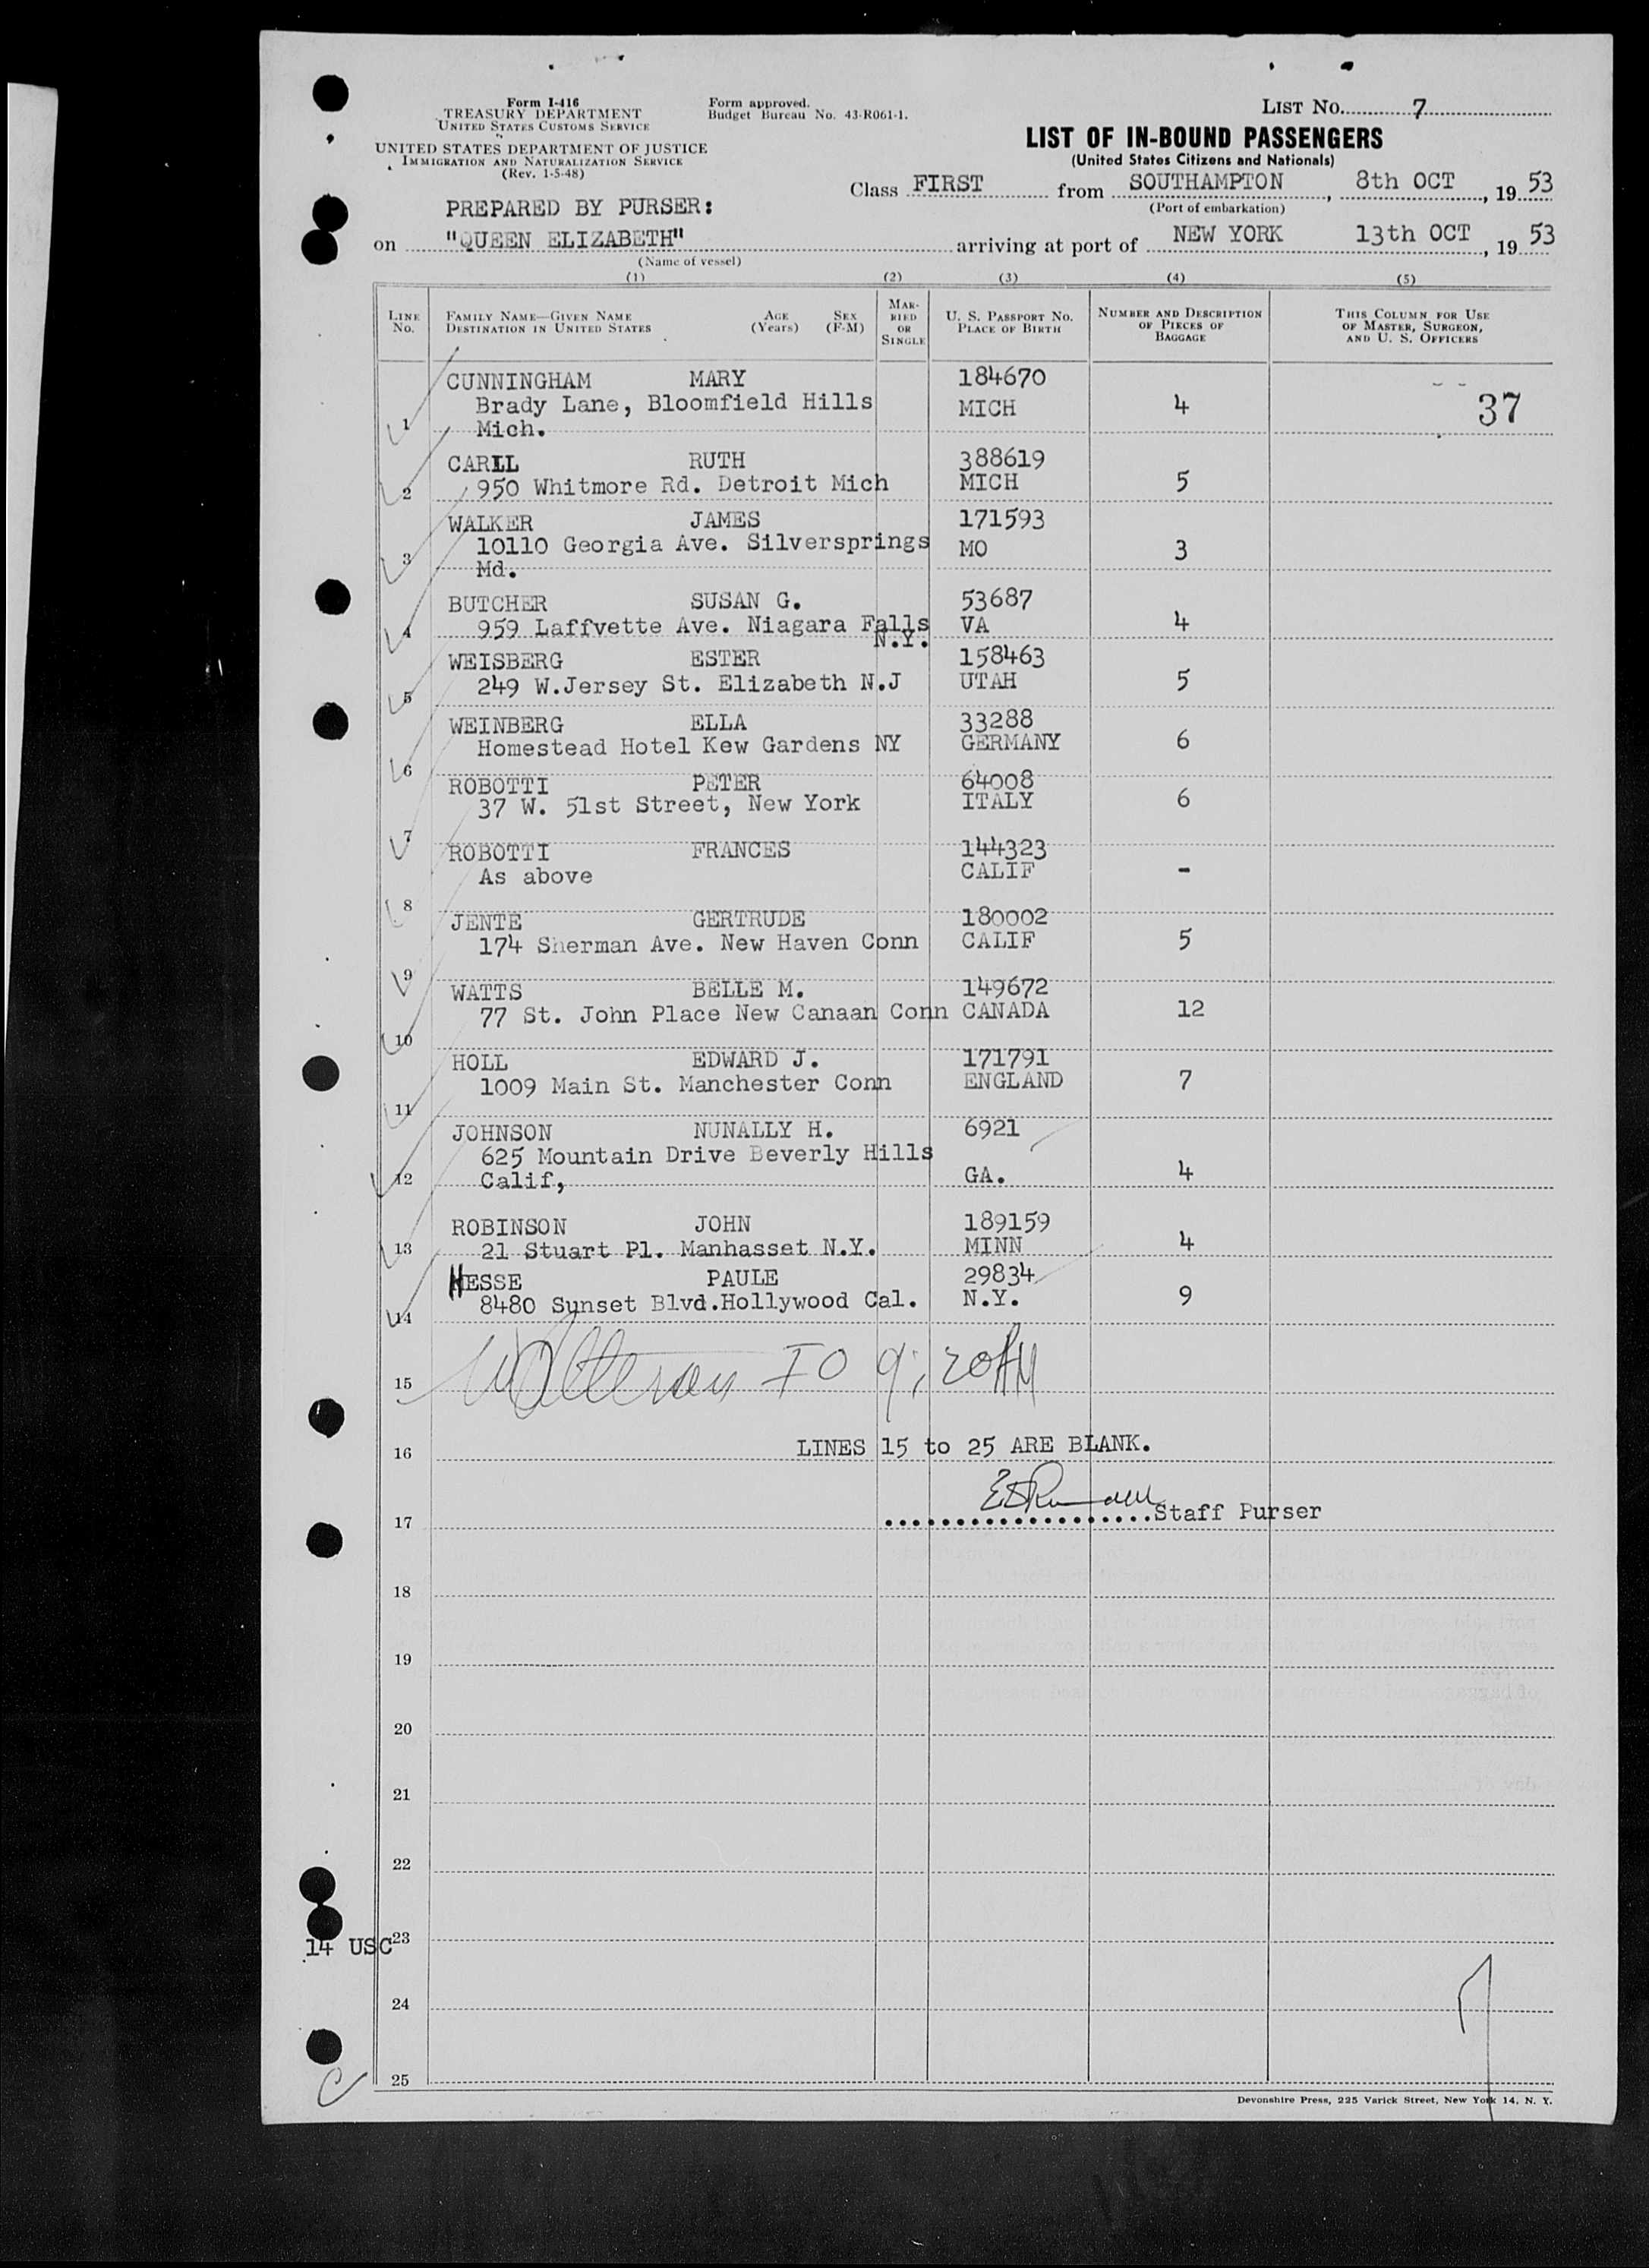 Form I-416
TREASURY DEPARTMENT
UNITED STATES CUSTOMS SERVICE
UNITED STATES DEPARTMENT OF JUSTICE
IMMIGRATION AND NATURALIZATION SERVICE
(Rev. 1-5-48)
Form approved.
Budget Bureau No. 43-R061-1.
LIST No. 7
LIST OF IN-BOUND PASSENGERS
(United States Citizens and Nationals)
Class FIRST from SOUTHAMPTON, 8th OCT, 1953
(Port of embarkation)
PREPARED BY PURSER:
on "QUEEN ELIZABETH" arriving at port of NEW YORK 13th OCT, 1953
(Name of vessel)
(1) (2) (3) (4) (5)
LINE No.
FAMILY NAME—GIVEN NAME
DESTINATION IN UNITED STATES
AGE (Years)
SEX (F-M)
MARRIED OR SINGLE
U. S. PASSPORT NO.
PLACE OF BIRTH
NUMBER AND DESCRIPTION OF PIECES OF BAGGAGE
THIS COLUMN FOR USE OF MASTER, SURGEON, AND U. S. OFFICERS
CUNNINGHAM MARY 184670
Brady Lane, Bloomfield Hills MICH 4 37
1 Mich.
CARLL RUTH 388619
2 950 Whitmore Rd. Detroit Mich MICH 5
WALKER JAMES 171593
10110 Georgia Ave. Silversprings MO 3
3 Md.
BUTCHER SUSAN G. 53687
4 959 Laffvette Ave. Niagara Falls VA 4
N.Y.
WEISBERG ESTER 158463
249 W.Jersey St. Elizabeth N.J UTAH 5
5
WEINBERG ELLA 33288
Homestead Hotel Kew Gardens NY GERMANY 6
6
ROBOTTI PETER 64008
37 W. 51st Street, New York ITALY 6
7
ROBOTTI FRANCES 144323
As above CALIF -
8
JENTE GERTRUDE 180002
174 Sherman Ave. New Haven Conn CALIF 5
9
WATTS BELLE M. 149672
77 St. John Place New Canaan Conn CANADA 12
10
HOLL EDWARD J. 171791
1009 Main St. Manchester Conn ENGLAND 7
11
JOHNSON NUNALLY H. 6921
625 Mountain Drive Beverly Hills
12 Calif, GA. 4
ROBINSON JOHN 189159
13 21 Stuart Pl. Manhasset N.Y. MINN 4
HESSE PAULE 29834
8480 Sunset Blvd.Hollywood Cal. N.Y. 9
14
IO 9:20PM
15
16 LINES 15 to 25 ARE BLANK.
17 Staff Purser
18
19
20
21
22
14 USC 23
24
25
Devonshire Press, 225 Varick Street, New York 14, N. Y.